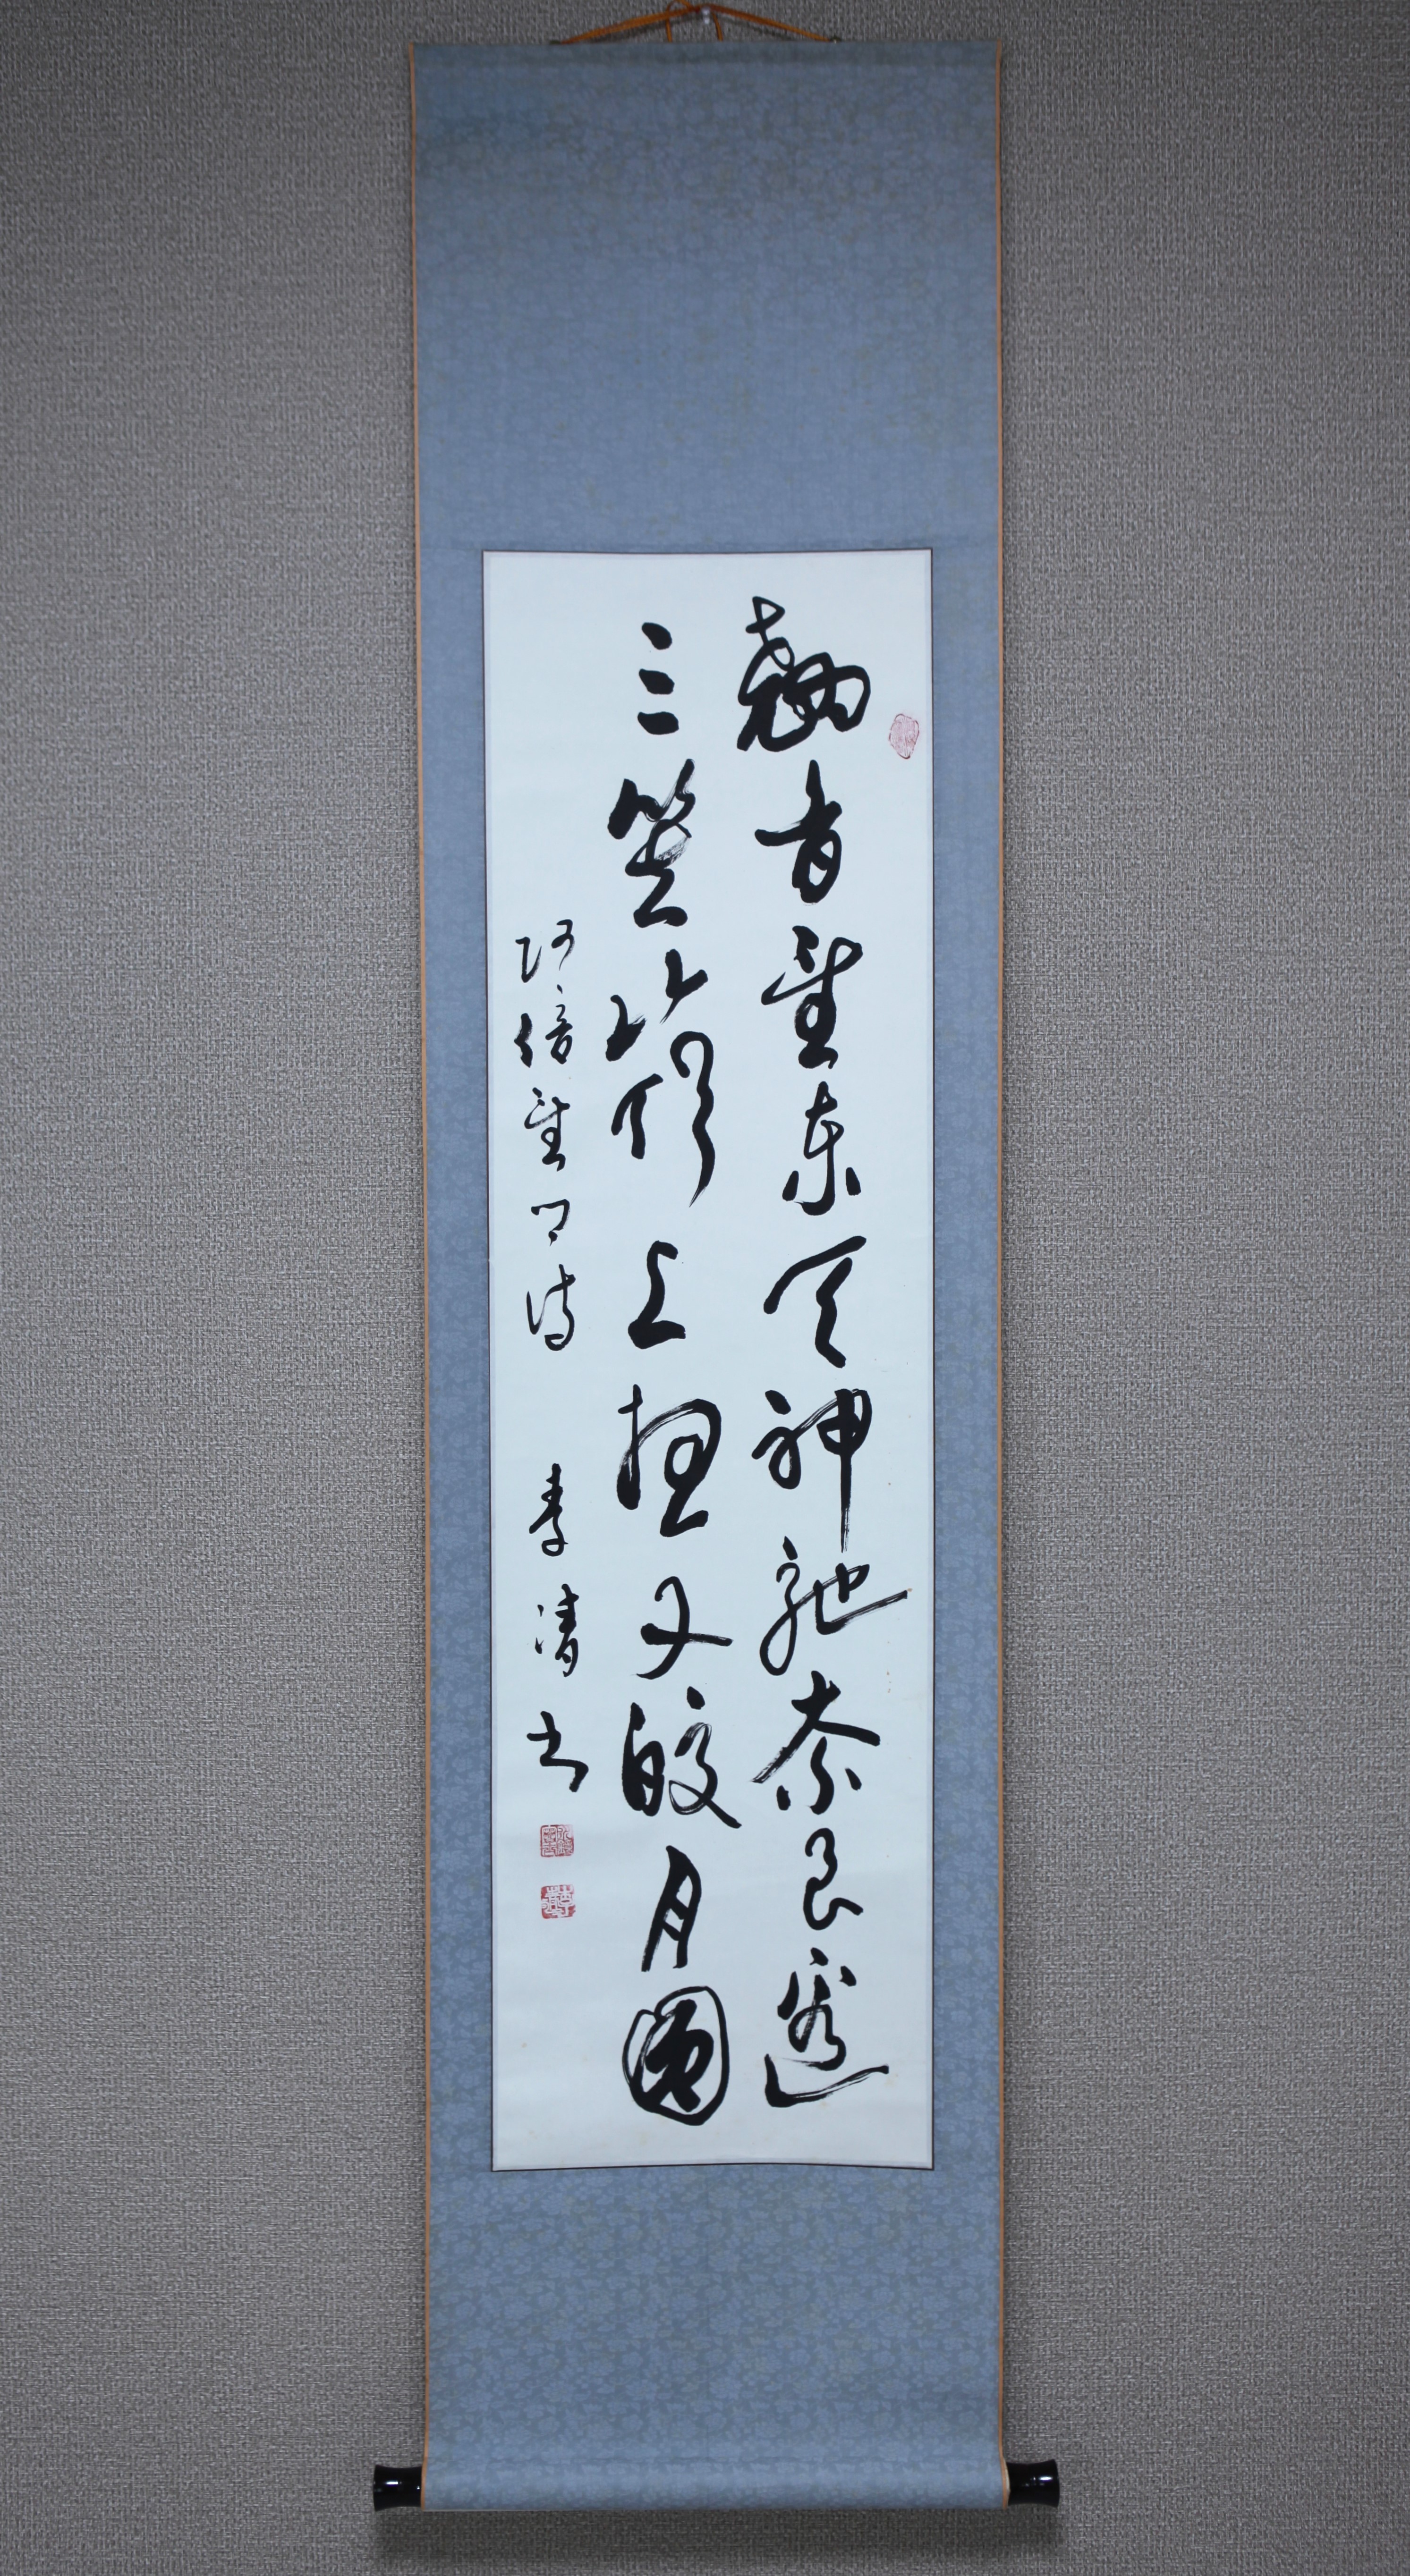 翹首望東天神馳奈良邊
三笠山頂上想又皎月圓
阿倍望月詩 季清書